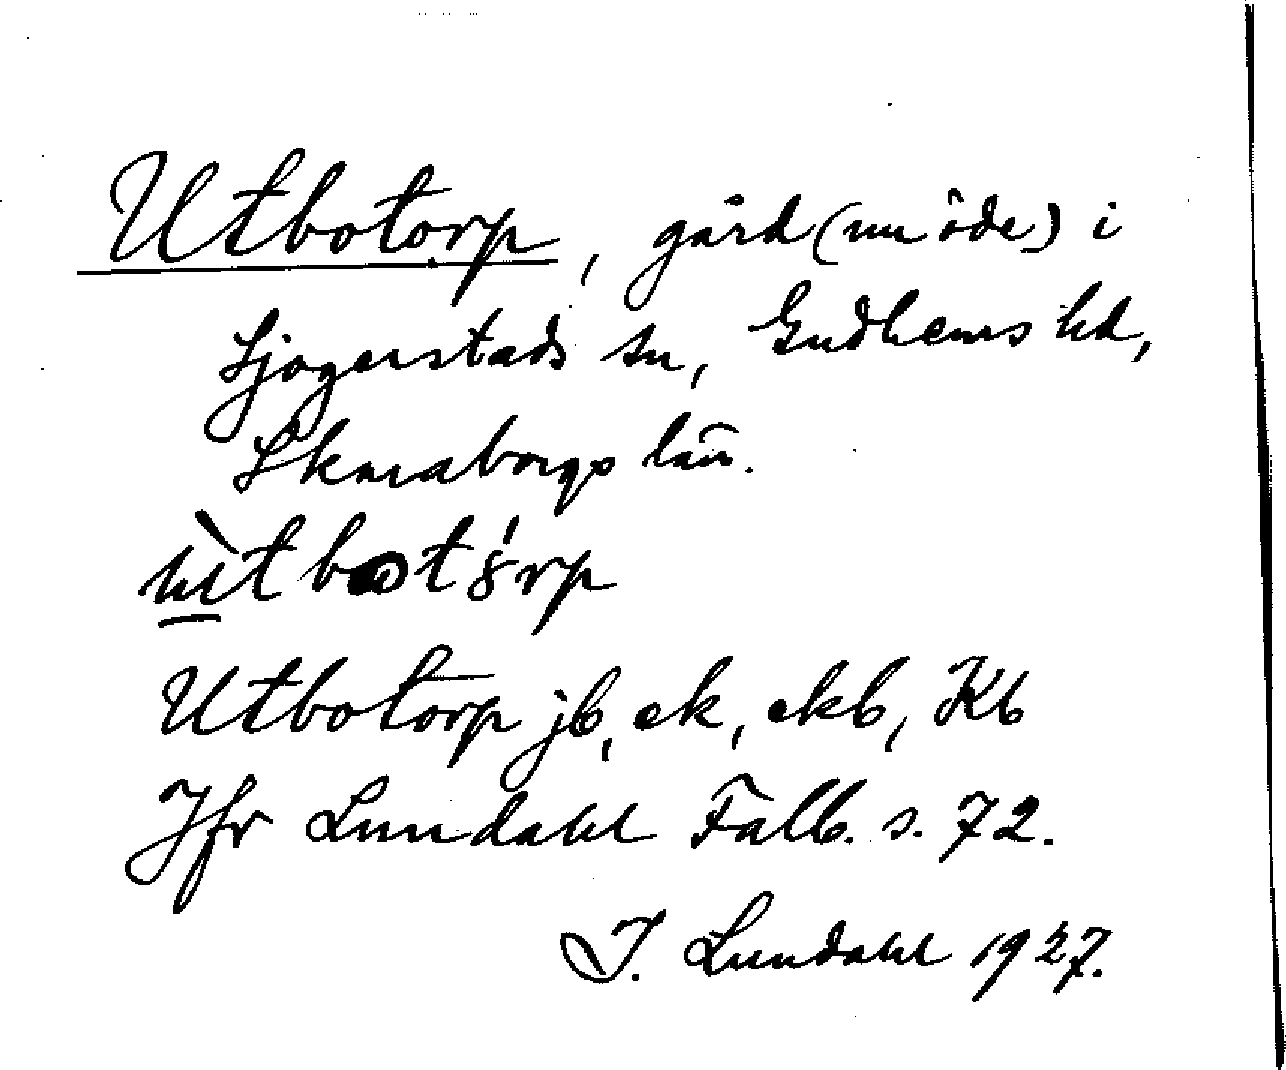 Utbotorp, gård (nu öde) i
Sjogerstads sn, Gudhems hd,
Skaraborgs län.
Utbotorp jb, ek, ekb, Kb
Jfr Lundahl Falb. s. 72.
I. Lundahl 1927.